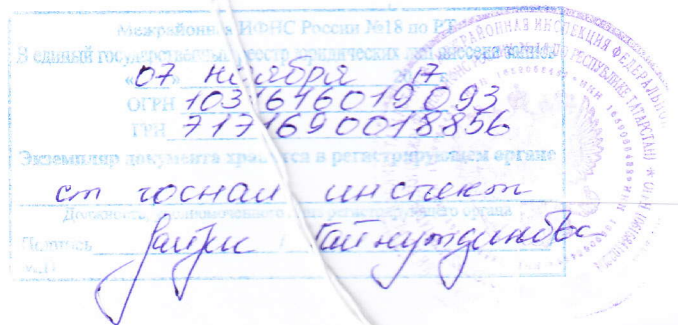 Межрайонная ИФНС России №18 по РТ
В единый государственный реестр юридических лиц внесена запись
«07» ноября 2017
ОГРН 1031616019093
ГРН 7171690018856
Экземпляр документа хранится в регистрирующем органе
ст госнал инспект
Должность уполномоченного лица регистрирующего органа
Подпись Гайнутдинова
М.П.
РАЙОННАЯ ИНСПЕКЦИЯ ФЕДЕРАЛЬНОЙ
ПО РЕСПУБЛИКЕ ТАТАРСТАН